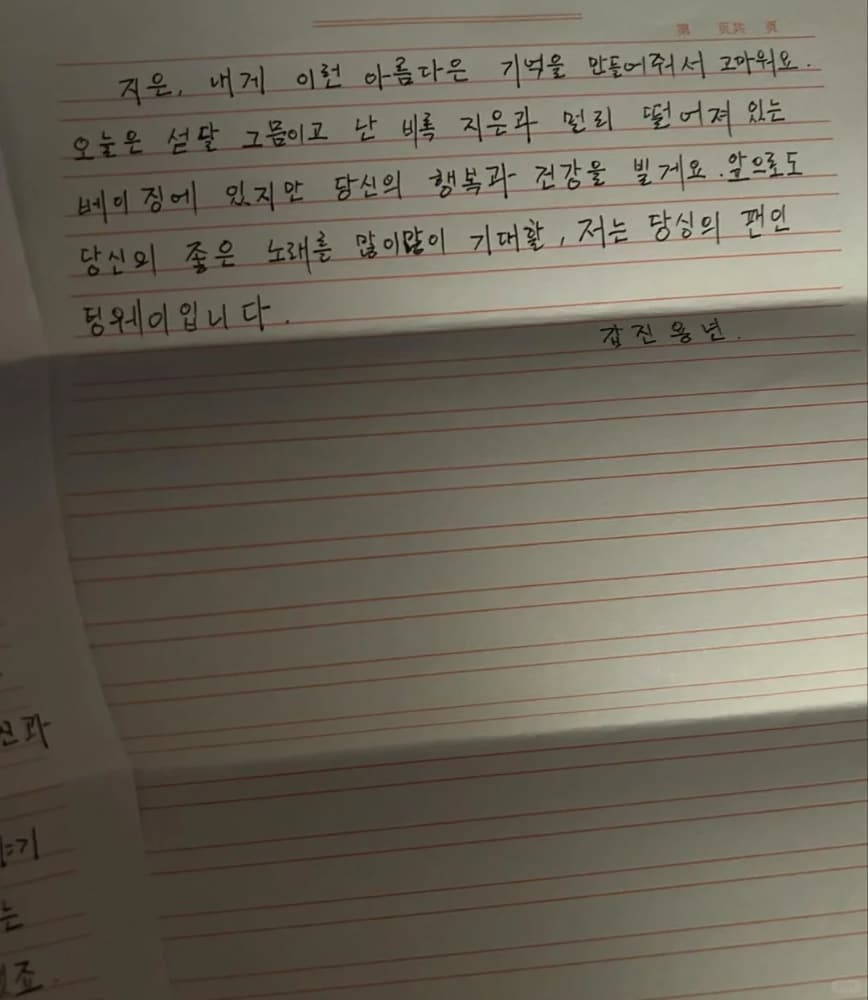 第 页共 页
지은, 내게 이런 아름다은 기억을 만들어줘서 고마워요.
오늘은 섣달 그믐이고 난 비록 지은과 멀리 떨어져 있는
베이징에 있지만 당신의 행복과 건강을 빌게요. 앞으로도
당신의 좋은 노래를 많이많이 기대할, 저는 당싱의 팬인
텅웨이입니다.
갑진용년.
과
기
는
죠.